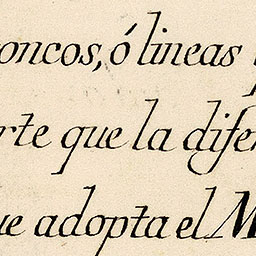 oncos, ó lineas
rte que la difer
ue adopta el M